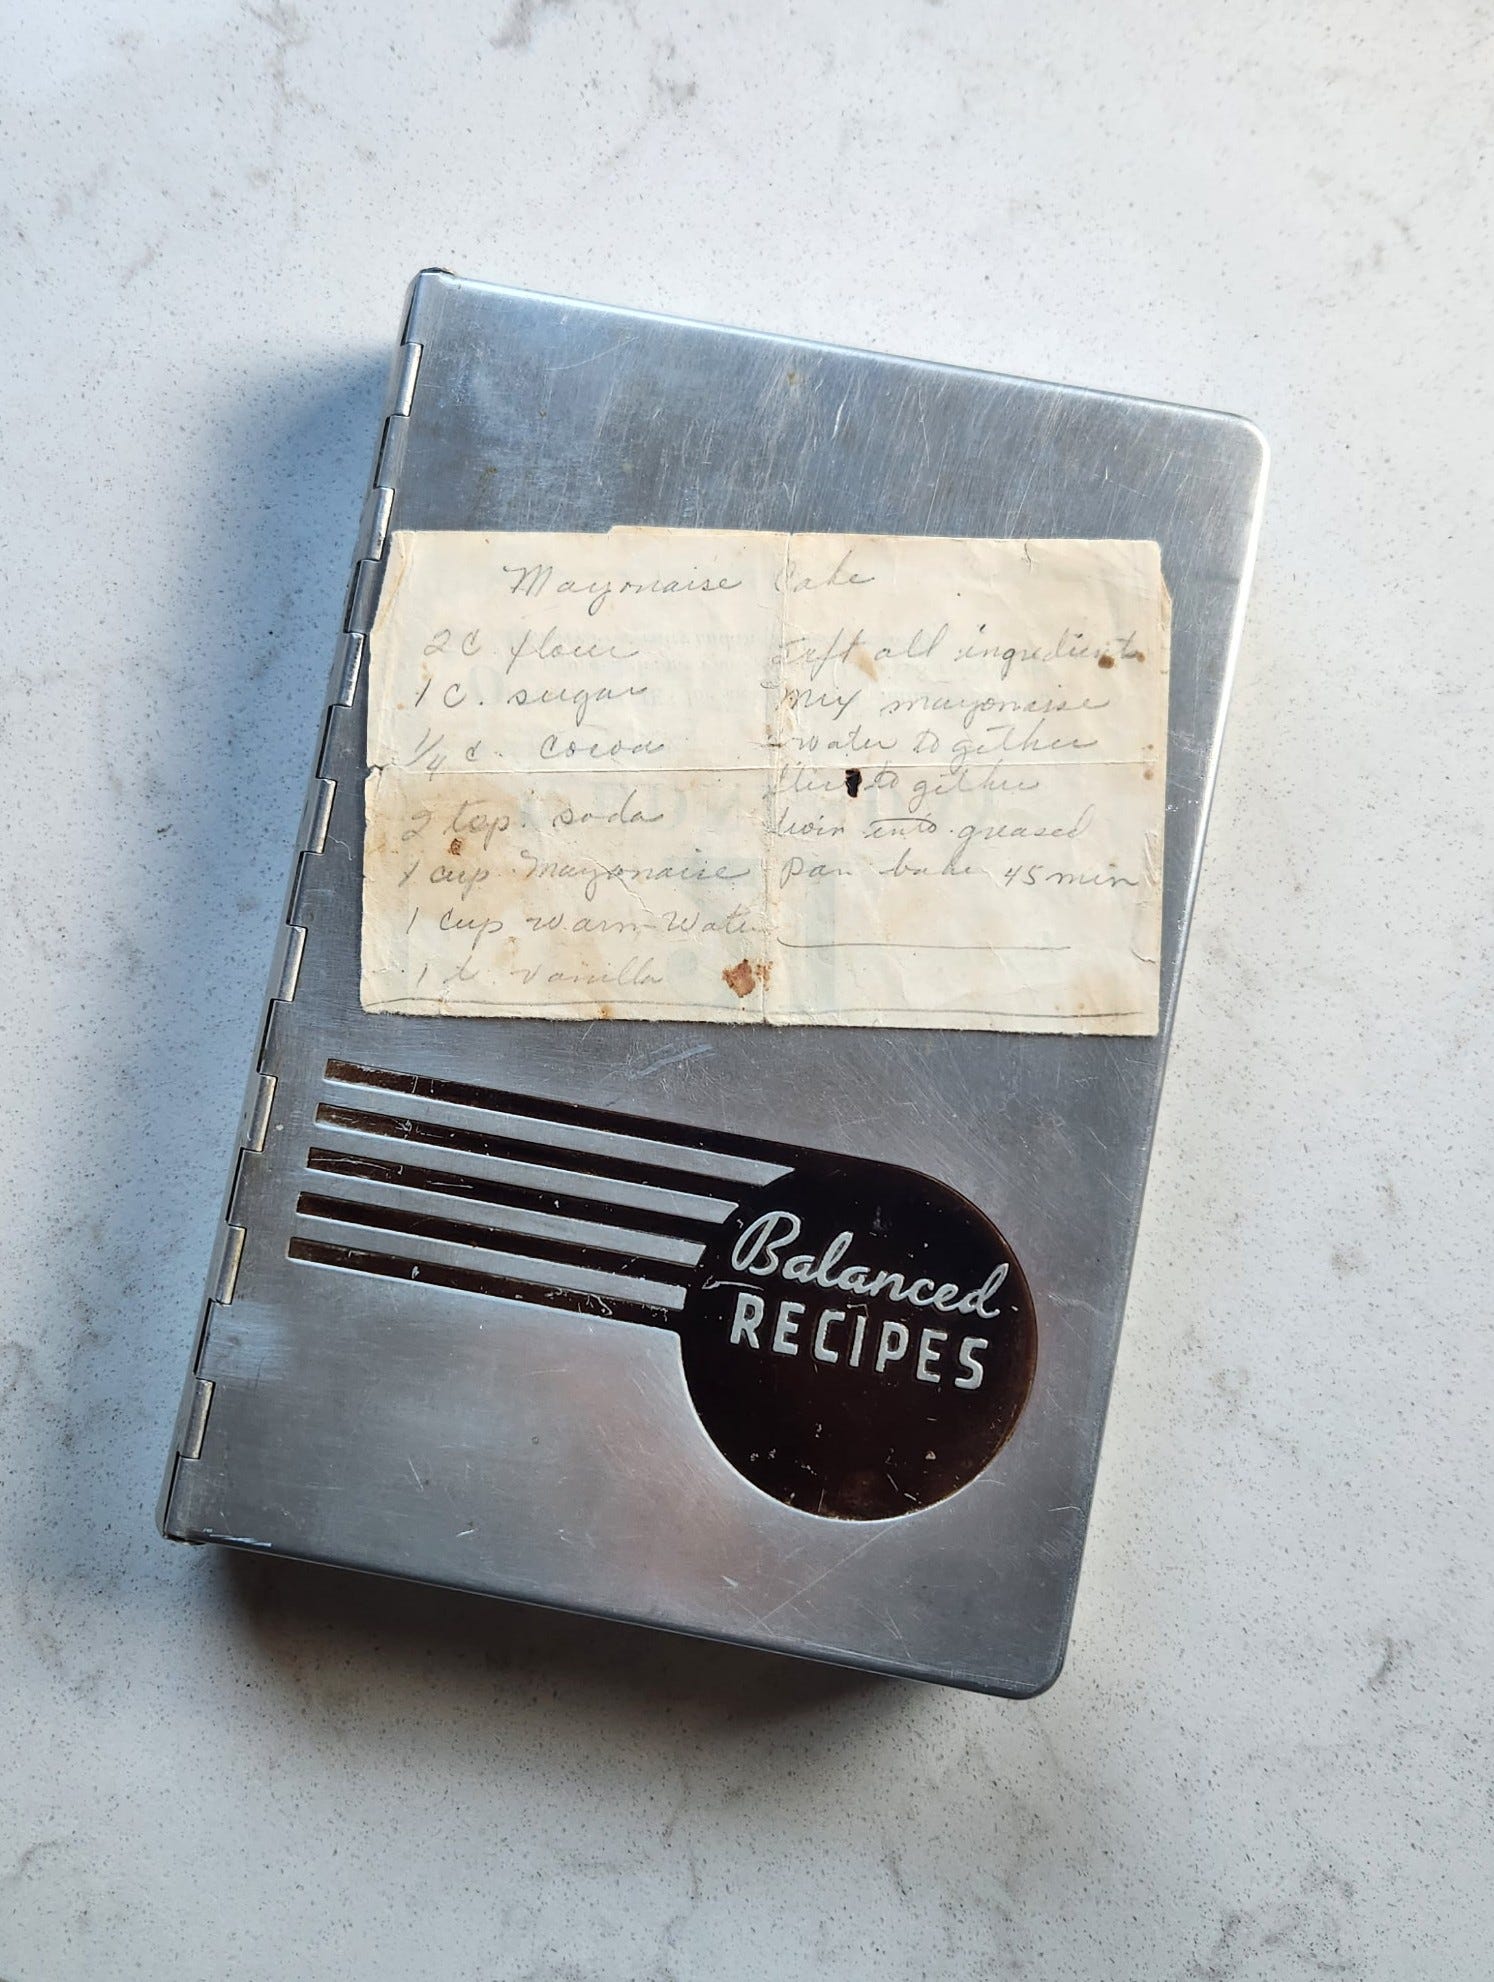 Mayonaise Cake
2 C flour
1 C. sugar
1/4 c. Cocoa
2 tsp. soda
1 cup Mayonaise
1 cup warm Water
1 t. vanilla
Sift all ingredients
Mix mayonaise
water together
together
into greased
pan bake 45 min
Balanced
RECIPES